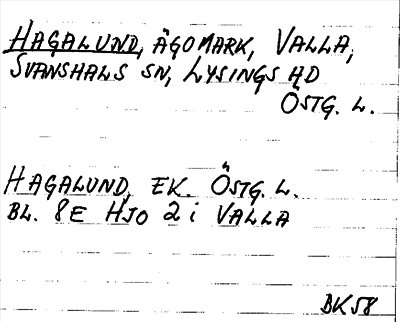 HAGALUND, ÄGOMARK, VALLA,
SVANSHALS SN, LYSINGS HD
ÖSTG. L.
HAGALUND, EK. ÖSTG. L.
BL. 8E HJO 2 i VALLA
BK58